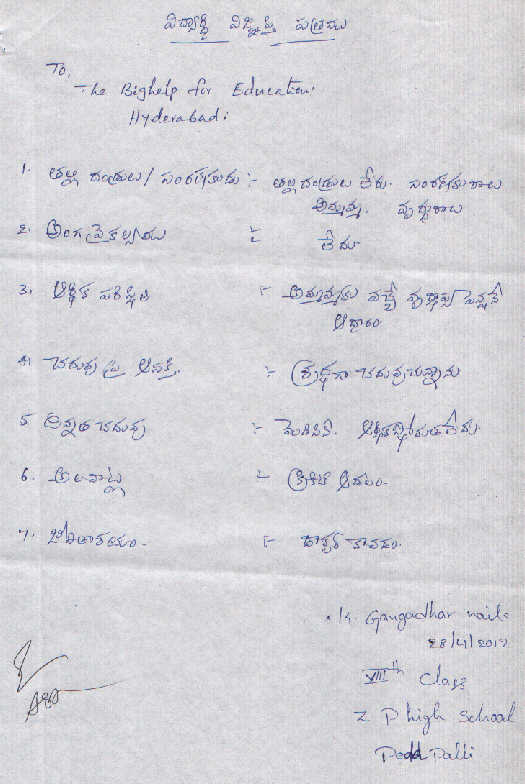 విద్యార్థి విజ్ఞప్తి పత్రము
To,
The Bighelp for Education.
Hyderabad.
1. తల్లి దండ్రులు / సంరక్షకుడు :- తల్లిదండ్రులు లేరు. సంరక్షకురాలు
అమ్మమ్మ. వృద్ధురాలు
2. అంగవైకల్యము :- లేదు
3. ఆర్థిక పరిస్థితి :- అమ్మమ్మకు వచ్చే వృద్ధాప్య పెన్షనే
ఆధారం
4. చదువు పై ఆసక్తి. :- శ్రద్ధగా చదువుచున్నాను
5. ఉన్నత చదువు :- మెడిసిన్.
6. అలవాట్లు :- క్రికెట్ ఆడటం.
7. జీవితాశయం. :- డాక్టర్ కావడం.
K. Gangadhar naik
28/4/2017
VIIIth Class
Z P high School
Pedda Palli